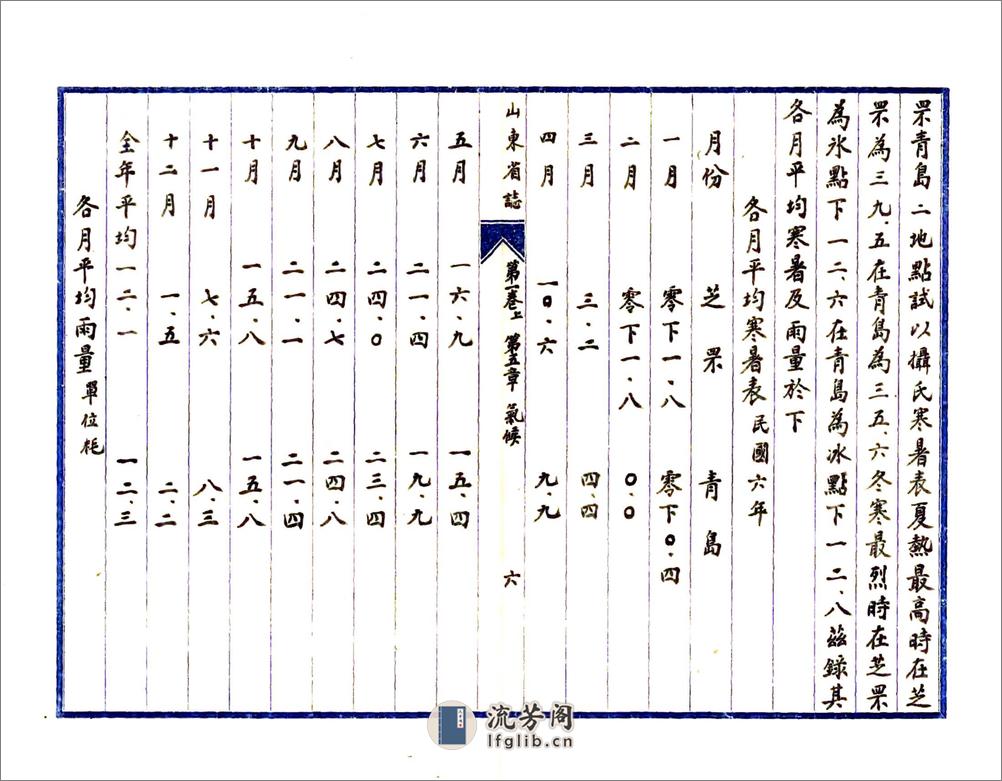 罘青島二地點試以攝氏寒暑表夏熱最高時在芝
罘為三九.五在青島為三五.六冬寒最烈時在芝罘
為氷點下一二.六在青島為冰點下一二.八茲錄其
各月平均寒暑及雨量於下
各月平均寒暑表 民國六年
月份 芝罘 青島
一月 零下一.八 零下〇.四
二月 零下一.八 〇.〇
三月 三.二 四.四
四月 一〇.六 九.九
山東省誌 第一卷上 第五章 氣候 六
五月 一六.九 一五.四
六月 二一.四 一九.九
七月 二四.〇 二三.四
八月 二四.七 二四.八
九月 二一.一 二一.四
十月 一五.八 一五.八
十一月 七.六 八.三
十二月 一.五 二.二
全年平均 一二.一 一二.三
各月平均雨量 單位粍
流芳阁
lfglib.cn